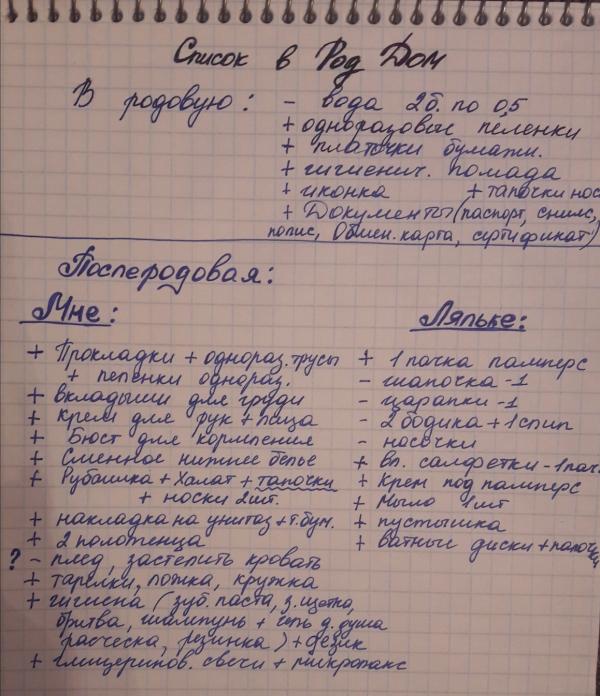 Список в Род Дом
В родовую: - вода 2б. по 0,5
+ одноразовые пеленки
+ платочки бумажн.
+ гигиенич. помада
+ иконка + тапочки нос
+ Документы (паспорт, снилс,
полис, Обмен. карта, сертификат)
Послеродовая:
Мне:
+ Прокладки + однораз. трусы
+ пеленки однораз.
+ вкладыши для груди
+ крем для рук + лица
+ Бюст для кормления
+ Сменное нижнее белье
+ Рубашка + Халат + тапочки
+ носки 2шт.
+ накладка на унитаз + т. бум.
+ 2 полотенца
? - плед, застелить кровать
+ тарелки, ложка, кружка
+ гигиена (зуб. паста, з. щетка,
бритва, шампунь + гель д. душа
расческа, резинка) + дезик
+ глицеринов. свечи + микролакс
Ляльке:
+ 1 пачка памперс
- шапочка - 1
- царапки - 1
- 2 бодика + 1 слип
- носочки
+ вл. салфетки - 1 пач.
+ Крем под памперс
+ Мыло 1шт
+ пустышка
+ ватные диски + палочки